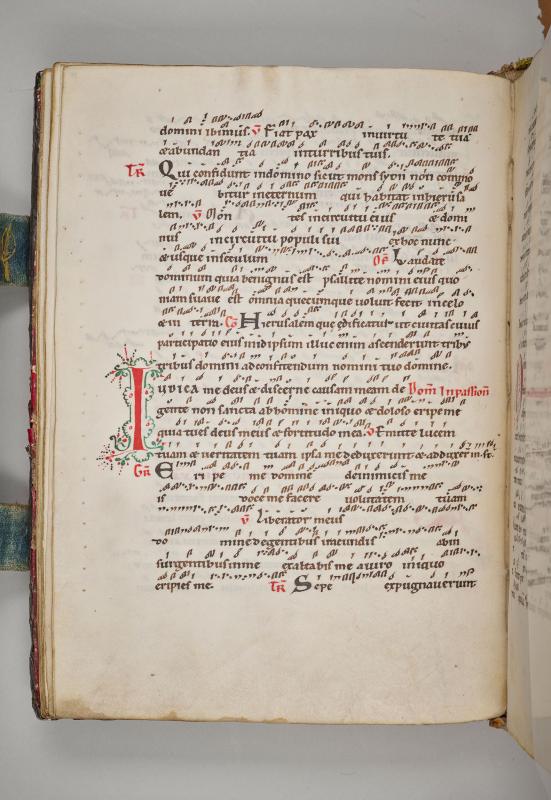 domini ibimus. V Fiat pax in uirtu te tua
& abundan tia in turribus tuis.
TR Qui confidunt in domino sicut mons syon non commo
ue bitur in eternum qui habitat in hierusa
lem. V Mon tes in circuitu eius & domi
nus in circuitu populi sui ex hoc nunc
& usque in seculum Of Laudate
dominum quia benignus est psallite nomini eius quo
niam suauis est omnia quecumque uoluit fecit in celo
& in terra. Co Hierusalem que edificatur ut ciuitas cuius
participatio eius in idipsum illuc enim ascenderunt tribus
tribus domini ad confitendum nomini tuo domine.
Iudica me deus & discerne causam meam de Dom In passion
gente non sancta ab homine iniquo & doloso eripe me
quia tu es deus meus & fortitudo mea. V Emitte lucem
tuam & ueritatem tuam ipsa me deduxerunt & adduxerunt
GR Eri pe me domine de inimicis me
is doce me facere uoluntatem tuam
V Liberator meus
do mine de gentibus iracundis ab in
surgentibus in me exaltabis me a uiro iniquo
eripies me. TR Sepe expugnauerunt